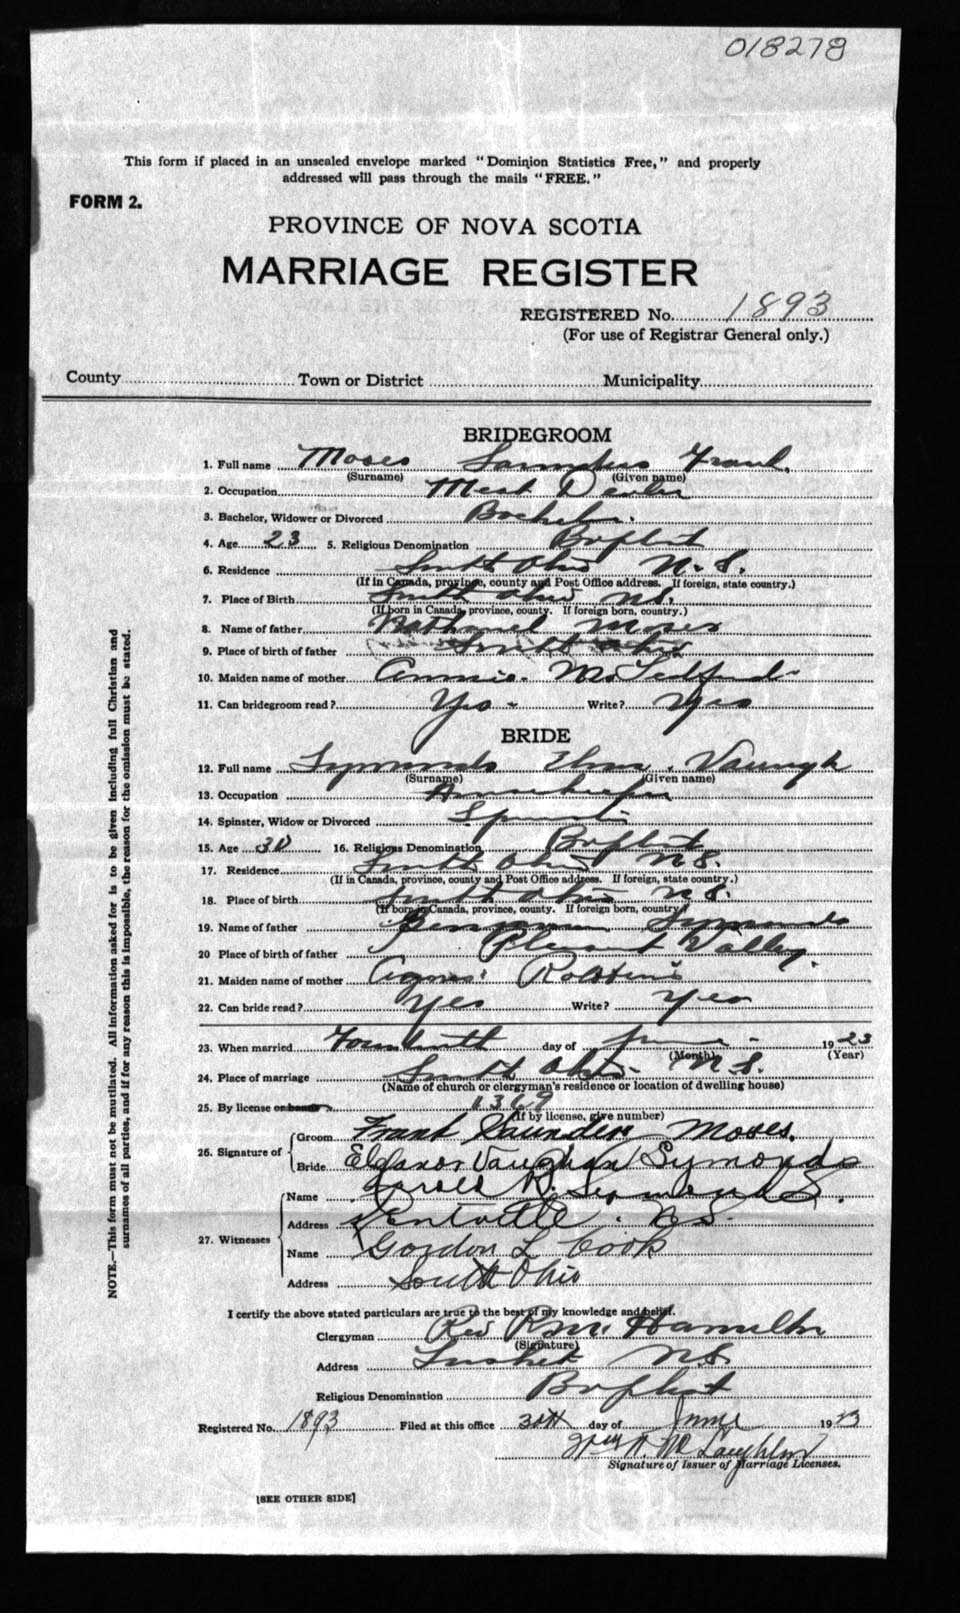 018278
This form if placed in an unsealed envelope marked "Dominion Statistics Free," and properly
addressed will pass through the mails "FREE."
FORM 2.
PROVINCE OF NOVA SCOTIA
MARRIAGE REGISTER
REGISTERED No. 1893
(For use of Registrar General only.)
County Town or District Municipality
BRIDEGROOM
1. Full name Moses Frank
(Surname) (Given name)
2. Occupation Meat Dealer
3. Bachelor, Widower or Divorced Bachelor.
4. Age 23 5. Religious Denomination Baptist
6. Residence South Ohio N. S.
(If in Canada, province, county and Post Office address. If foreign, state country.)
7. Place of Birth South Ohio N.S.
(If born in Canada, province, county. If foreign born, country.)
8. Name of father Nathaniel Moses
9. Place of birth of father South Ohio
10. Maiden name of mother Annie
11. Can bridegroom read? Yes - Write? Yes
BRIDE
12. Full name Symonds
(Surname) (Given name)
13. Occupation
14. Spinster, Widow or Divorced
15. Age 30 16. Religious Denomination Baptist
17. Residence South Ohio N S.
(If in Canada, province, county and Post Office address. If foreign, state country.)
18. Place of birth South Ohio N S.
(If born in Canada, province, county. If foreign born, country)
19. Name of father Benjamin Symonds
20 Place of birth of father Pleasant Valley.
21. Maiden name of mother Agnes Robbins
22. Can bride read? Yes Write? Yes
23. When married day of June - 1923
(Month) (Year)
24. Place of marriage South Ohio - N S.
(Name of church or clergyman's residence or location of dwelling house)
25. By license or banns 1369
(If by license, give number)
26. Signature of Groom Frank Saunders Moses.
Bride Eleanor Vaughan Symonds
27. Witnesses Name Symonds.
Address Kentville. N S.
Name Gordon L Cook
Address South Ohio
I certify the above stated particulars are true to the best of my knowledge and belief.
Clergyman Rev Hamilton
(Signature)
Address Tusket N S
Religious Denomination Baptist
Registered No. 1893 Filed at this office 30th day of June 1923
McLaughlin
Signature of Issuer of Marriage Licenses.
[SEE OTHER SIDE]
NOTE.—This form must not be mutilated. All information asked for is to be given including full Christian and
surnames of all parties, and if for any reason this is impossible, the reason for the omission must be stated.